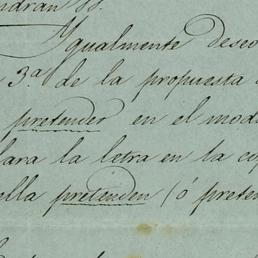 ndrán SS.
Ygualmente deseo
3.ª de la propuesta
pretender en el mod
lara la letra en la co
lla pretenden (ó prete